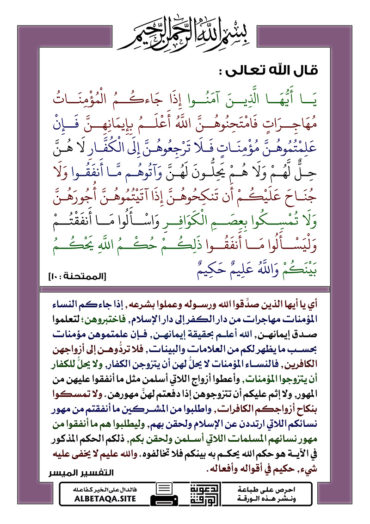 بسم الله الرحمن الرحيم
قال الله تعالى :
يَـا أَيُّهَـا الَّذِيـنَ آمَنُـوا إِذَا جَاءكُـمُ الْمُؤْمِنَـاتُ
مُهَاجِـرَاتٍ فَامْتَحِنُوهُـنَّ اللَّهُ أَعْلَـمُ بِإِيمَانِهِـنَّ فَـإِنْ
عَلِمْتُمُوهُنَّ مُؤْمِنَـاتٍ فَـلَا تَرْجِعُوهُنَّ إِلَى الْكُفَّـارِ لَا هُـنَّ
حِـلٌّ لَّهُـمْ وَلَا هُـمْ يَحِلُّـونَ لَهُـنَّ وَآتُوهُـم مَّـا أَنفَقُـوا وَلَا
جُنَـاحَ عَلَيْكُـمْ أَن تَنكِحُوهُـنَّ إِذَا آتَيْتُمُوهُـنَّ أُجُورَهُـنَّ
وَلَا تُمْسِـكُوا بِعِصَـمِ الْكَوَافِـرِ وَاسْـأَلُوا مَـا أَنفَقْتُـمْ
وَلْيَسْـأَلُوا مَـا أَنفَقُـوا ذَلِكُـمْ حُكْـمُ اللَّهِ يَحْكُـمُ
بَيْنَكُمْ وَاللَّهُ عَلِيمٌ حَكِيمٌ
[الممتحنة : ١٠]
أي يا أيها الذين صدَّقوا الله ورسـوله وعملوا بشرعه ، إذا جاءكـم النساء
المؤمنات مهاجرات من دار الكفر إلى دار الإسلام ، فاختبروهن ؛ لتعلموا
صـدق إيمانهـن , الله أعلـم بحقيقة إيمانهـن , فـإن علمتموهن مؤمنات
بحسـب ما يظهر لكم من العلامات والبينات , فلا تردُّوهـن إلى أزواجهن
الكافرين , فالنسـاء المؤمنات لا يحلُّ لهن أن يتزوجن الكفار , ولا يحلُّ للكفار
أن يتزوجوا المؤمنات , وأعطوا أزواج اللاتي أسلمن مثل ما أنفقوا عليهن من
المهور , ولا إثم عليكم أن تتزوجوهن إذا دفعتم لهنَّ مهورهن . ولا تمسكوا
بنكاح أزواجكـم الكافرات , واطلبوا من المشـركين ما أنفقتم من مهور
نسائكم اللاتي ارتددن عن الإسلام ولحقن بهم , وليطلبوا هم ما أنفقوا من
مهور نسائهم المسلمات اللاتي أسـلمن ولحقن بكم , ذلكم الحكم المذكور
في الآيـة هو حكم الله يحكـم به بينكم فلا تخالفوه . والله عليم لا يخفى عليه
شيء , حكيم في أقواله وأفعاله .
التفسير الميسر
احرص على طباعة
ونشر هـذه الورقـة
الدعوية
الورقة
فالدال على الخير كفاعله
ALBETAQA.SITE